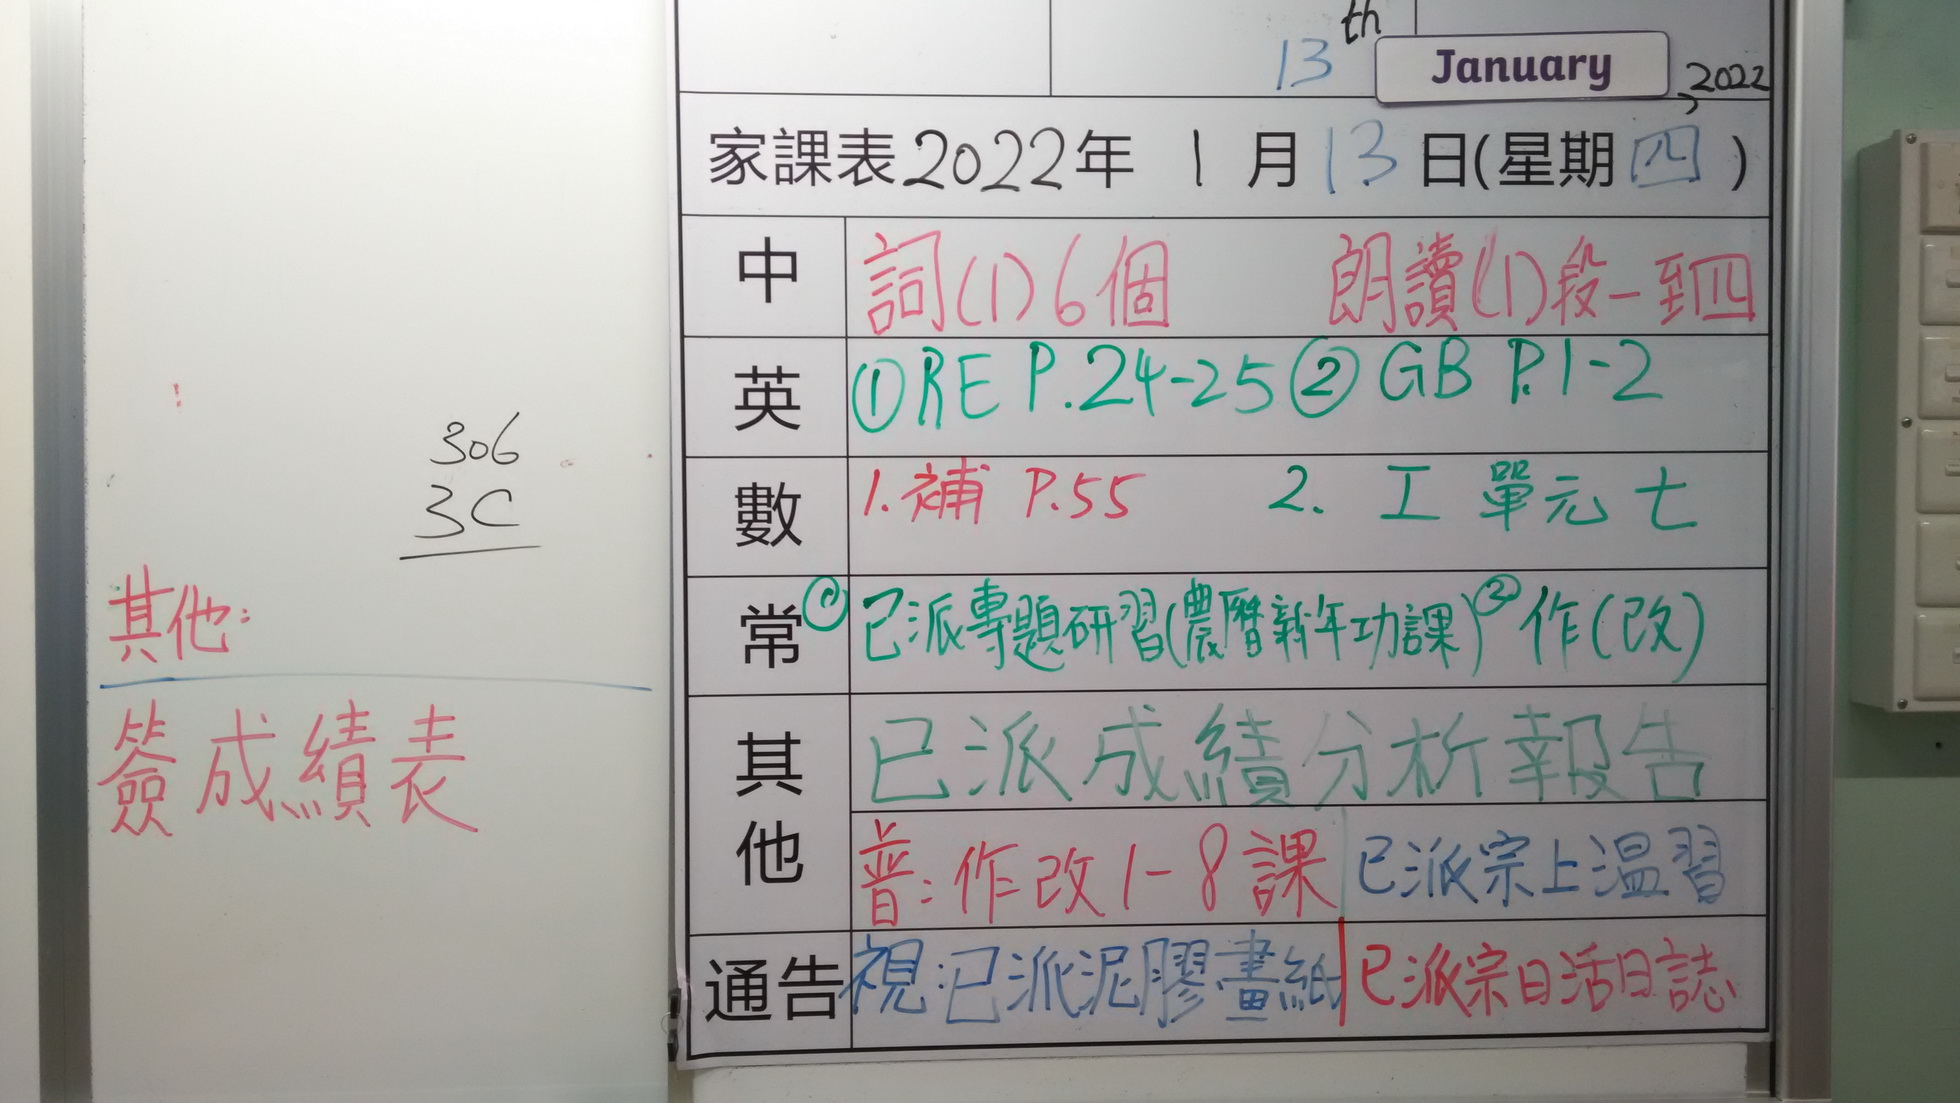 306
3C
其他:
簽成績表
13th January, 2022
家課表2022年 1 月 13 日(星期 四 )
中 詞(1)6個 朗讀(1)段一到四
英 ①RE P.24-25 ② GB P.1-2
數 1.補 P.55 2. 工 單元七
常 ①已派專題研習(農曆新年功課) ②作(改)
其他 已派成績分析報告
普:作改1-8課 已派宗上温習
通告 視:已派泥膠畫紙 已派宗日活日誌